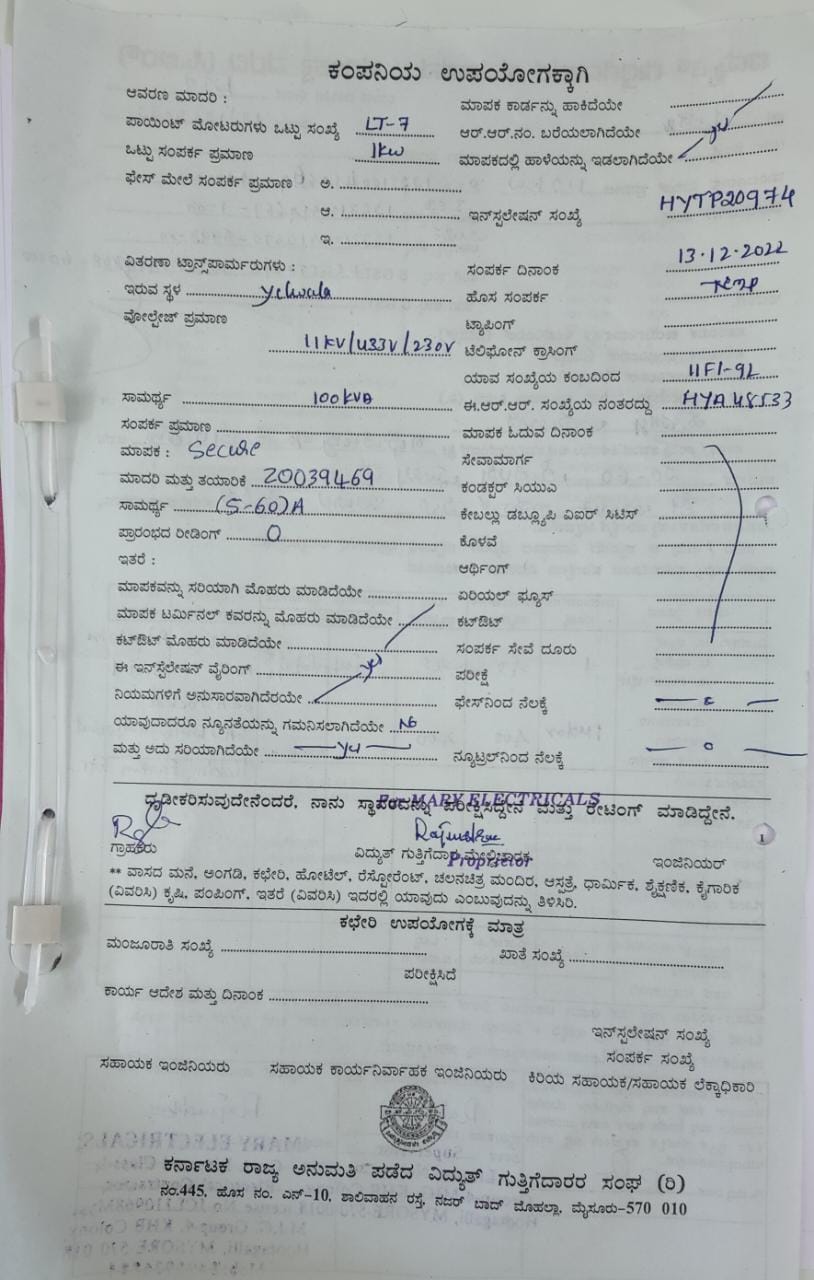 ಕಂಪನಿಯ ಉಪಯೋಗಕ್ಕಾಗಿ
ಆವರಣ ಮಾದರಿ : ಮಾಪಕ ಕಾರ್ಡನ್ನು ಹಾಕಿದೆಯೇ ....................
ಪಾಯಿಂಟ್ ಮೋಟರುಗಳು ಒಟ್ಟು ಸಂಖ್ಯೆ LT-7 ಆರ್.ಆರ್.ನಂ. ಬರೆಯಲಾಗಿದೆಯೇ
ಒಟ್ಟು ಸಂಪರ್ಕ ಪ್ರಮಾಣ 1kw ಮಾಪಕದಲ್ಲಿ ಹಾಳೆಯನ್ನು ಇಡಲಾಗಿದೆಯೇ
ಫೇಸ್ ಮೇಲೆ ಸಂಪರ್ಕ ಪ್ರಮಾಣ ಅ. ....................
ಆ. .................... ಇನ್‌ಸ್ಟಲೇಷನ್ ಸಂಖ್ಯೆ HYTP20974
ಇ. ....................
ವಿತರಣಾ ಟ್ರಾನ್ಸ್‌ಪಾರ್ಮರುಗಳು : ಸಂಪರ್ಕ ದಿನಾಂಕ 13.12.2022
ಇರುವ ಸ್ಥಳ Yelwala ಹೊಸ ಸಂಪರ್ಕ Temp
ವೋಲ್ಟೇಜ್ ಪ್ರಮಾಣ ಟ್ಯಾಪಿಂಗ್ ....................
11KV/433V/230V ಟೆಲಿಫೋನ್ ಕ್ರಾಸಿಂಗ್ ....................
ಯಾವ ಸಂಖ್ಯೆಯ ಕಂಬದಿಂದ 11F1-92
ಸಾಮರ್ಥ್ಯ 100KVA ಈ.ಆರ್.ಆರ್. ಸಂಖ್ಯೆಯ ನಂತರದ್ದು HYA48533
ಸಂಪರ್ಕ ಪ್ರಮಾಣ .................... ಮಾಪಕ ಓದುವ ದಿನಾಂಕ ....................
ಮಾಪಕ : Secure ಸೇವಾಮಾರ್ಗ ....................
ಮಾದರಿ ಮತ್ತು ತಯಾರಿಕೆ 20039469 ಕಂಡಕ್ಟರ್ ಸಿಯುಎ ....................
ಸಾಮರ್ಥ್ಯ (5-60)A ಕೇಬಲ್ಲು ಡಬ್ಲ್ಯೂಪಿ ವಿಐರ್ ಸಿಟಿಸ್ ....................
ಪ್ರಾರಂಭದ ರೀಡಿಂಗ್ 0 ಕೊಳವೆ ....................
ಇತರೆ : ಆರ್ಥಿಂಗ್ ....................
ಮಾಪಕವನ್ನು ಸರಿಯಾಗಿ ಮೊಹರು ಮಾಡಿದೆಯೇ .................... ಏರಿಯಲ್ ಫ್ಯೂಸ್ ....................
ಮಾಪಕ ಟರ್ಮಿನಲ್ ಕವರನ್ನು ಮೊಹರು ಮಾಡಿದೆಯೇ .......... ಕಟ್‌ಔಟ್ ....................
ಕಟ್‌ಔಟ್ ಮೊಹರು ಮಾಡಿದೆಯೇ .................... ಸಂಪರ್ಕ ಸೇವೆ ದೂರು ....................
ಈ ಇನ್‌ಸ್ಟೆಲೇಷನ್ ವೈರಿಂಗ್ .................... ಪರೀಕ್ಷೆ ....................
ನಿಯಮಗಳಿಗೆ ಅನುಸಾರವಾಗಿದೆರಯೇ .................... ಫೇಸ್‌ನಿಂದ ನೆಲಕ್ಕೆ
ಯಾವುದಾದರೂ ನ್ಯೂನತೆಯನ್ನು ಗಮನಿಸಲಾಗಿದೆಯೇ No
ಮತ್ತು ಅದು ಸರಿಯಾಗಿದೆಯೇ ನ್ಯೂಟ್ರಲ್‌ನಿಂದ ನೆಲಕ್ಕೆ — 0 —
For MARY ELECTRICALS
ದೃಢೀಕರಿಸುವುದೇನೆಂದರೆ, ನಾನು ಸ್ಥಾವರವನ್ನು ಪರೀಕ್ಷಿಸಿದ್ದೇನೆ ಮತ್ತು ರೇಟಿಂಗ್ ಮಾಡಿದ್ದೇನೆ.
ಗ್ರಾಹಕರು ವಿದ್ಯುತ್ ಗುತ್ತಿಗೆದಾರ ಮೇಲ್ವಿಚಾರಕ ಇಂಜಿನಿಯರ್
Proprietor
** ವಾಸದ ಮನೆ, ಅಂಗಡಿ, ಕಛೇರಿ, ಹೋಟೆಲ್, ರೆಸ್ಟೋರೆಂಟ್, ಚಲನಚಿತ್ರ ಮಂದಿರ, ಆಸ್ಪತ್ರೆ, ಧಾರ್ಮಿಕ, ಶೈಕ್ಷಣಿಕ, ಕೈಗಾರಿಕ
(ವಿವರಿಸಿ) ಕೃಷಿ, ಪಂಪಿಂಗ್, ಇತರೆ (ವಿವರಿಸಿ) ಇದರಲ್ಲಿ ಯಾವುದು ಎಂಬುವುದನ್ನು ತಿಳಿಸಿರಿ.
ಕಛೇರಿ ಉಪಯೋಗಕ್ಕೆ ಮಾತ್ರ
ಮಂಜೂರಾತಿ ಸಂಖ್ಯೆ .................... ಖಾತೆ ಸಂಖ್ಯೆ ....................
ಪರೀಕ್ಷಿಸಿದೆ
ಕಾರ್ಯ ಆದೇಶ ಮತ್ತು ದಿನಾಂಕ ....................
ಇನ್‌ಸ್ಟಲೇಷನ್ ಸಂಖ್ಯೆ
ಸಂಪರ್ಕ ಸಂಖ್ಯೆ
ಸಹಾಯಕ ಇಂಜಿನಿಯರು ಸಹಾಯಕ ಕಾರ್ಯನಿರ್ವಾಹಕ ಇಂಜಿನಿಯರು ಕಿರಿಯ ಸಹಾಯಕ/ಸಹಾಯಕ ಲೆಕ್ಕಾಧಿಕಾರಿ
ಕರ್ನಾಟಕ ರಾಜ್ಯ ಅನುಮತಿ ಪಡೆದ ವಿದ್ಯುತ್ ಗುತ್ತಿಗೆದಾರರ ಸಂಘ (ರಿ)
ನಂ.445, ಹೊಸ ನಂ. ಎನ್-10, ಶಾಲಿವಾಹನ ರಸ್ತೆ, ನಜರ್ ಬಾದ್ ಮೊಹಲ್ಲಾ, ಮೈಸೂರು-570 010